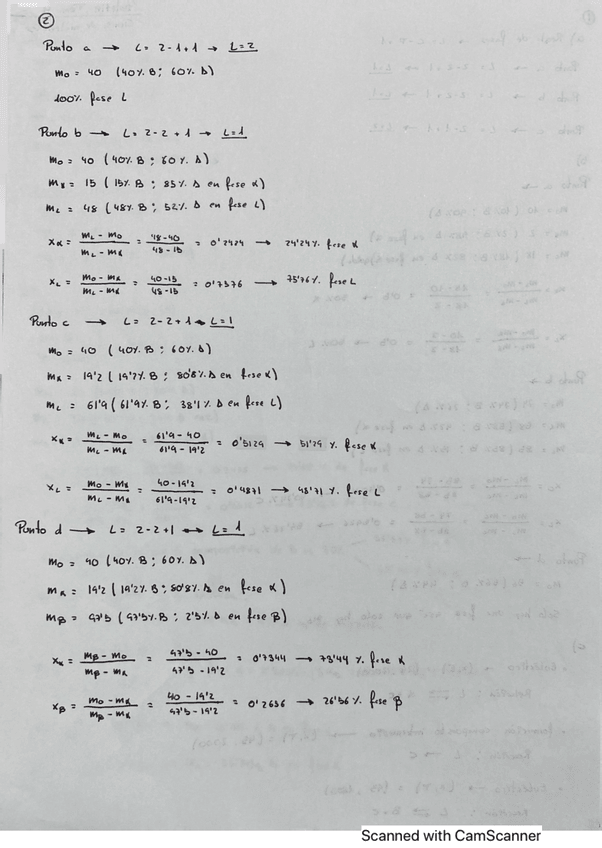 ②
Punto a → L = 2-1+1 → L=2
m₀ = 40 (40% B ; 60% A)
100% fase L
Punto b → L = 2-2+1 → L=1
m₀ = 40 (40% B ; 60% A)
mα = 15 (15% B ; 85% A en fase α)
mL = 48 (48% B ; 52% A en fase L)
xα = (mL - m₀)/(mL - mα) = (48-40)/(48-15) = 0'2424 → 24'24% fase α
xL = (m₀ - mα)/(mL - mα) = (40-15)/(48-15) = 0'7576 → 75'76% fase L
Punto c → L = 2-2+1 → L=1
m₀ = 40 (40% B ; 60% A)
mα = 19'2 (19'2% B ; 80'8% A en fase α)
mL = 61'9 (61'9% B ; 38'1% A en fase L)
xα = (mL - m₀)/(mL - mα) = (61'9 - 40)/(61'9 - 19'2) = 0'5129 → 51'29 % fase α
xL = (m₀ - mα)/(mL - mα) = (40-19'2)/(61'9-19'2) = 0'4871 → 48'71 % fase L
Punto d → L = 2-2+1 ↔ L=1
m₀ = 40 (40% B ; 60% A)
mα = 19'2 (19'2% B ; 80'8% A en fase α)
mβ = 97'5 (97'5% B ; 2'5% A en fase β)
xα = (mβ - m₀)/(mβ - mα) = (97'5 - 40)/(97'5 - 19'2) = 0'7344 → 73'44 % fase α
xβ = (m₀ - mα)/(mβ - mα) = (40 - 19'2)/(97'5 - 19'2) = 0'2656 → 26'56 % fase β
Scanned with CamScanner